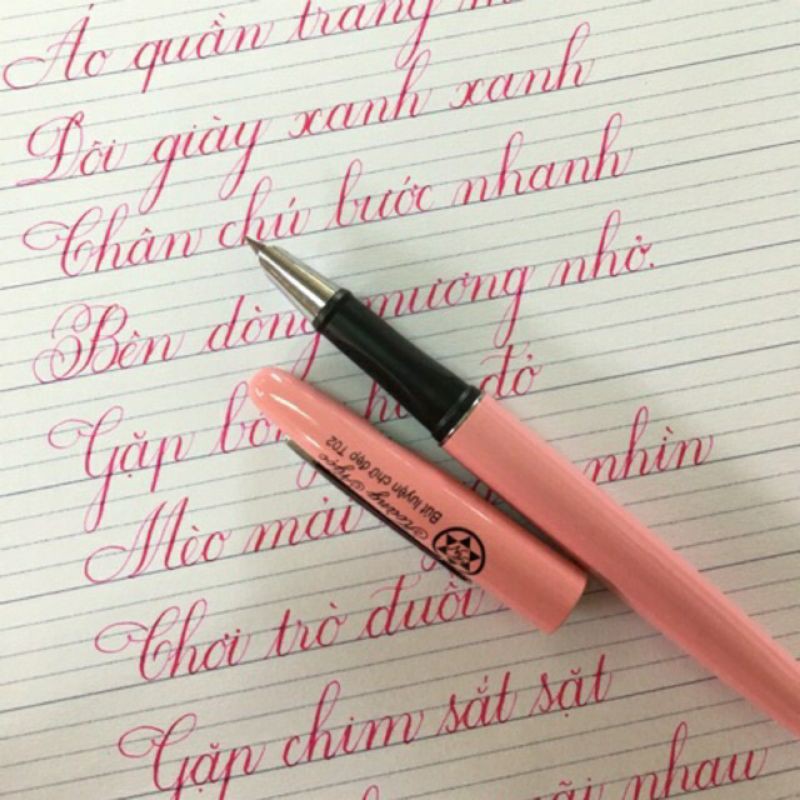 Áo quần trang
Đôi giày xanh xanh
Chân chú bước nhanh
Bên dòng mương nhỏ.
Gặp đỏ
Mèo mải nhìn
Chơi trò đuổi
Gặp chim sắt sặt
nhau
Hoàng Ngọc
Bút luyện chữ đẹp T02